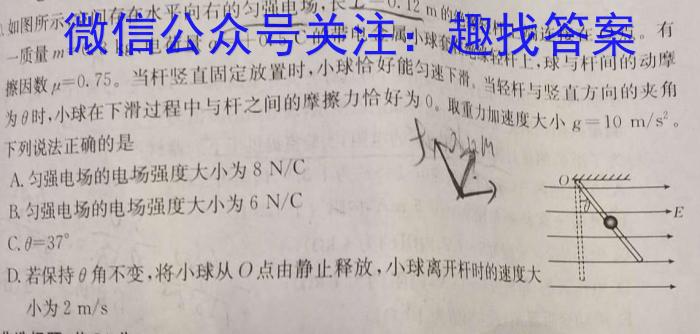 如图所示 间存在水平向右的匀强电场,长L=0.12 m的
微信公众号关注:趣找答案
一质量m 的带电金属小球套 轻杆上,球与杆间的动摩
擦因数μ=0.75。当杆竖直固定放置时,小球恰好能匀速下滑。当轻杆与竖直方向的夹角
为θ时,小球在下滑过程中与杆之间的摩擦力恰好为0。取重力加速度大小g=10 m/s²。
下列说法正确的是
A.匀强电场的电场强度大小为8 N/C
B.匀强电场的电场强度大小为6 N/C
C.θ=37°
D.若保持θ角不变,将小球从O点由静止释放,小球离开杆时的速度大
小为2 m/s
O
θ
E